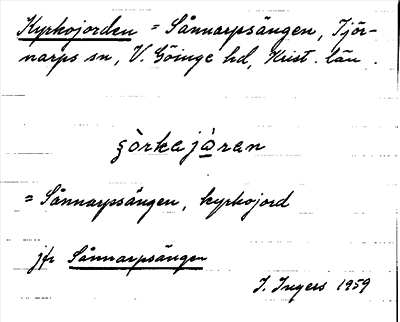 Kyrkojorden = Sånnarpsängen, Tjör-
narps sn, V. Göinge hd, Krist. län.
ʂòrkajɷ̀ran
= Sånnarpsängen, kyrkojord
jfr Sånnarpsängen
I. Ingers 1959